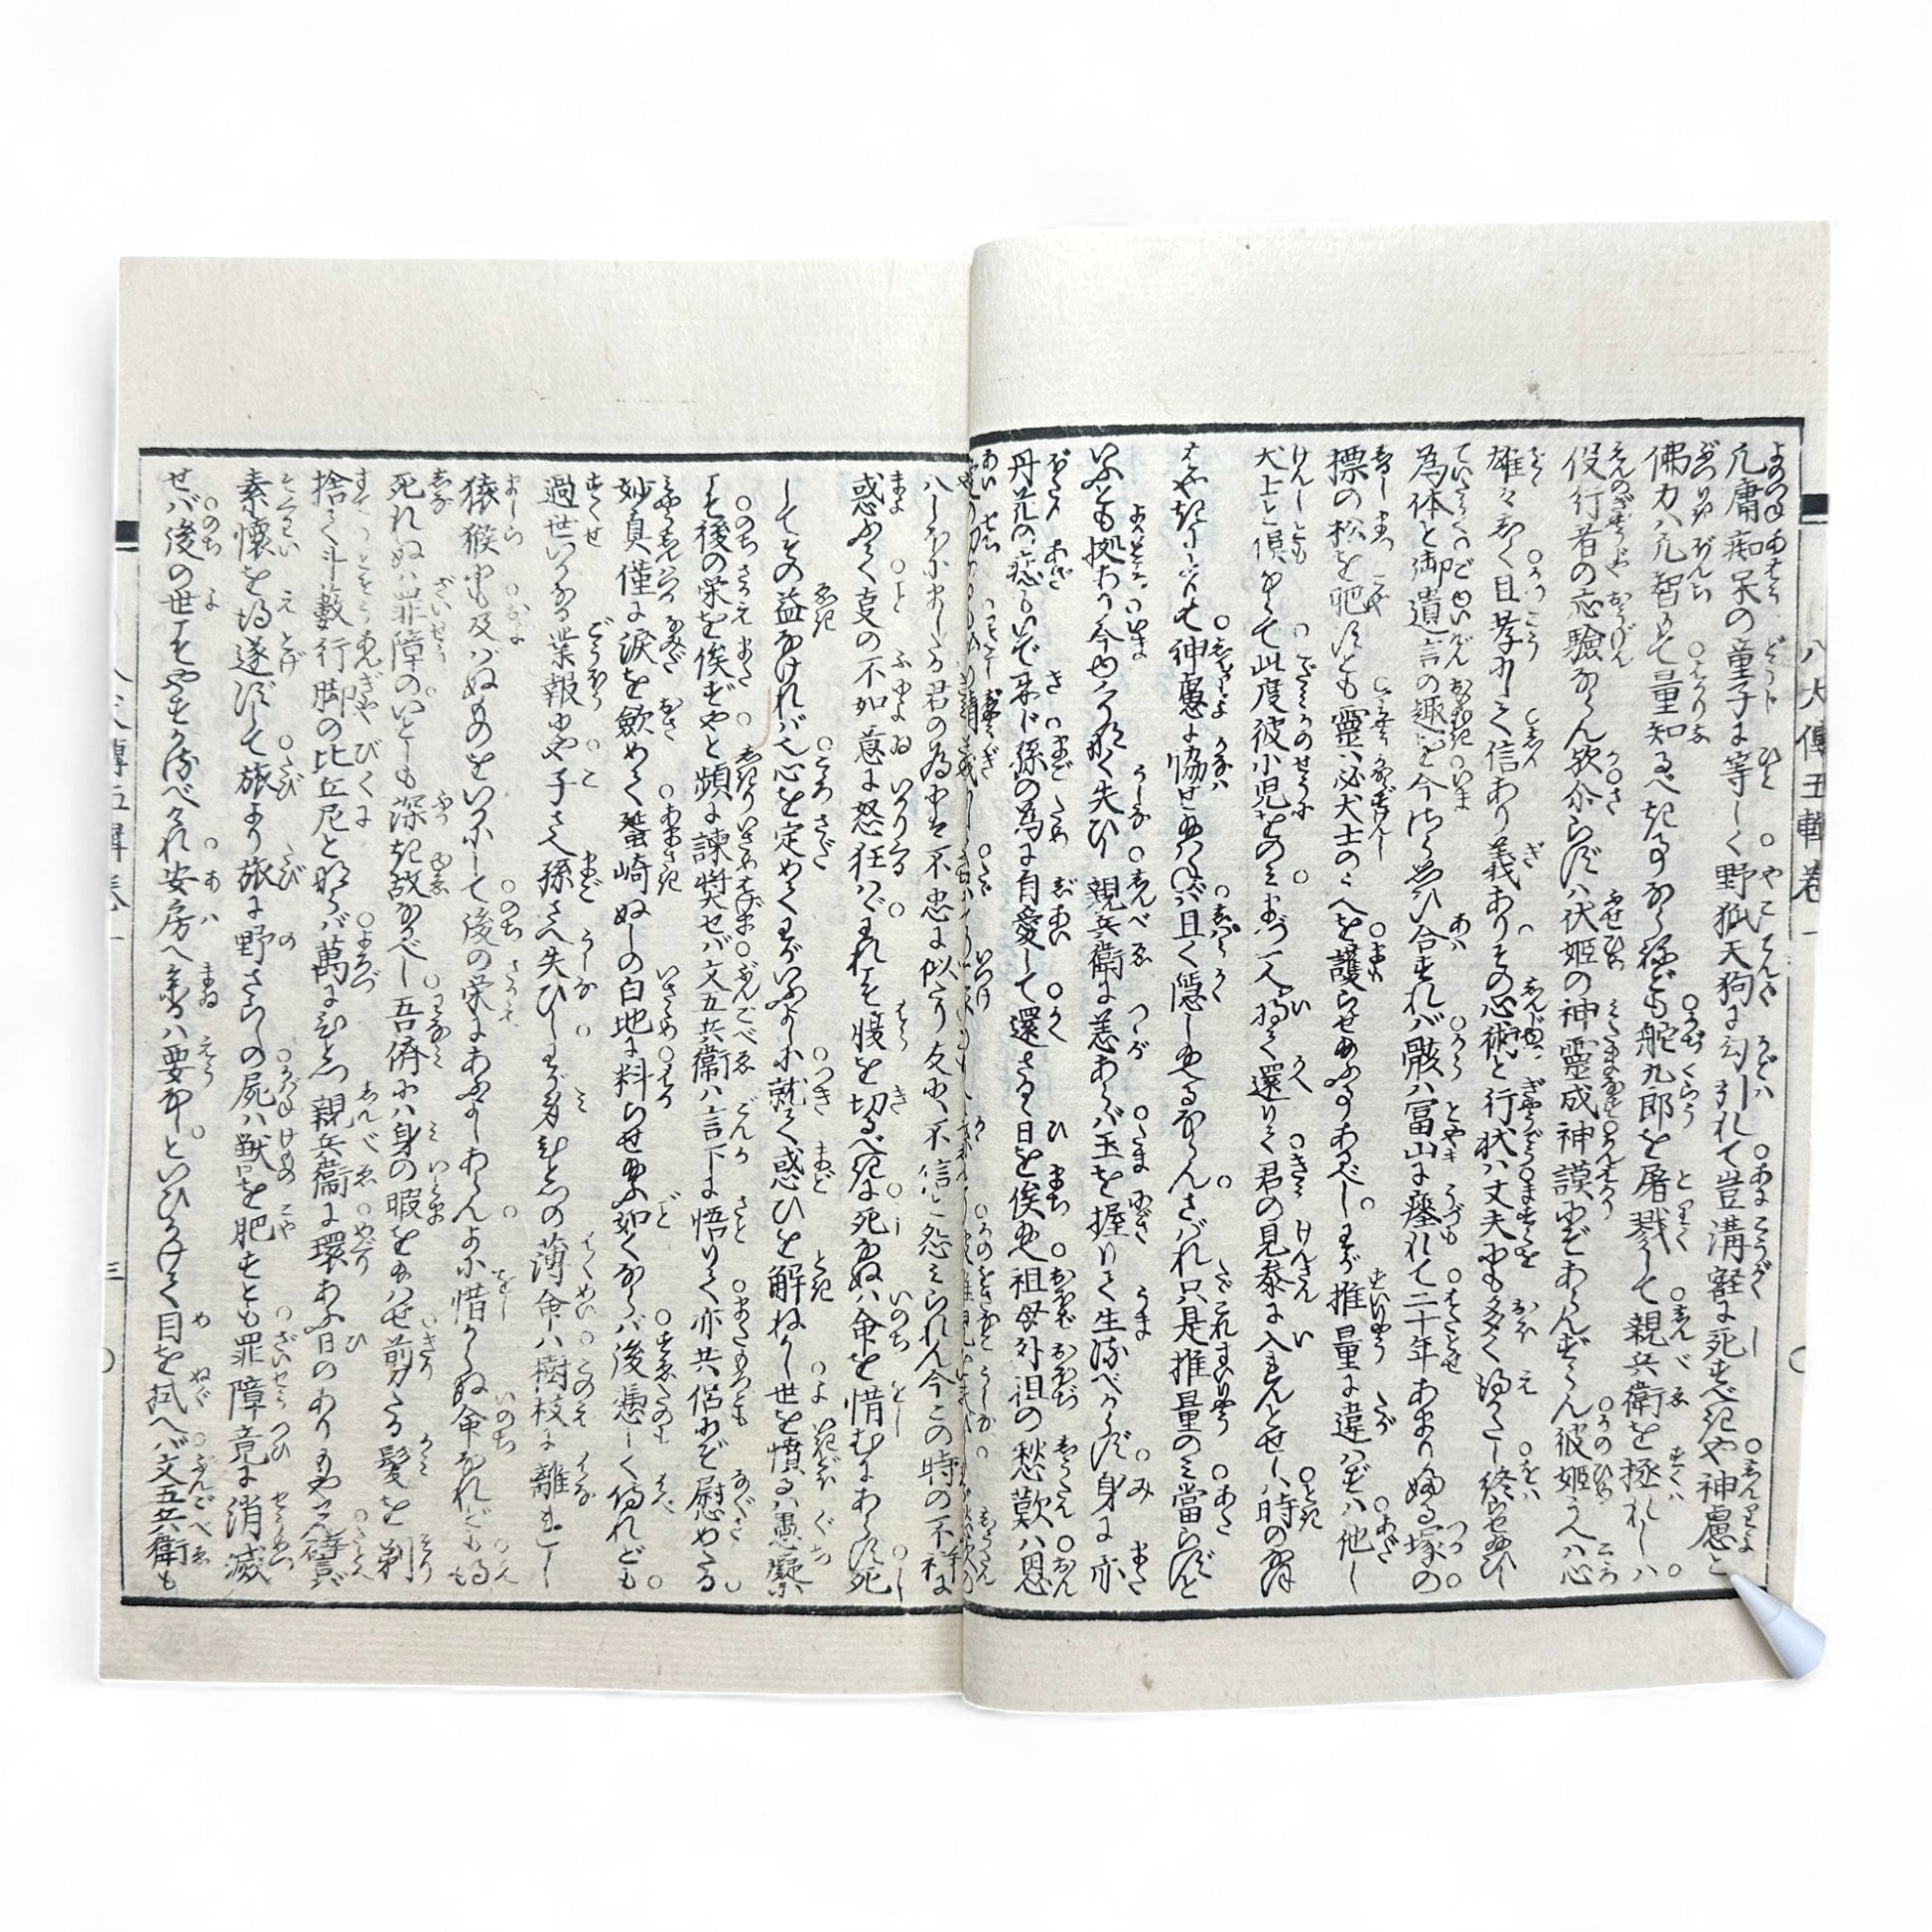 八犬傳五輯卷一
凡庸痴呆の童子に等しく野狐天狗に勾引れて豈溝壑に死すべきや神慮と
佛力ハ凡智もて量知るべきことならねども舵九郎を屠戮して親兵衛を拯れしハ
役行者の応驗ならん欤介らずハ伏姫の神靈成神謨にぞあらんずらん彼姫うへハ心
雄々しく且孝りて信あり義ありその心術と行状ハ丈夫にも多く得がたし終らせ給ひし
為体と御遺言の趣を今はた思ひ合すれバ骸ハ富山に瘞れて二十年あまり婦る塚の
標の松を肥すとも靈ハ必犬士のうへを護らせ給ふことあるべしわが推量に違ハずハ他し
犬士と俟ずして此度彼小児をのミまづ一人将て還りて君の見参に入れんとせし時の
神慮に恊ハ給ハねバ且く隱し給ふならんさバれ只是推量のミ當らずと
いふとも拠あり今ゆくりなく失ひし親兵衛に恙あらバ玉を握りて生るべからず身に亦
丹花の痣らいで來じ孫の為に自愛して還さるゝ日を俟給へ祖母外祖の愁歎ハ恩
ハしからに似たり君の為にハ不忠に似たり友にハ不信と怨ミられん今この時の不祥に
惑ふて意の不如意に怒狂ハでわれも腹を切るべきに死なぬハ命を惜むにあらず死
してその益なけれバ心を定めてわがいふよしに就て惑ひを解ねかし世を憤るハ愚癡に
して後の栄を俟ずやと頻に諫奬せバ文五兵衛ハ言下に悟りて亦共侶にぞ慰めたる
妙真僅に涙を斂めて蜑崎ぬしの白地に料らせ給ふ如くならバ後憑しく侍れども
過世いかなる業報にや子さへ孫さへ失ひしわが身ひとつの薄命ハ樹枝に離れし
猿猴にも及バぬものをいかにして後の栄にあふよしあらんよに惜からぬ命なれども得
死れぬハ罪障のいとも深き故なるべし吾儕にハ身の暇を給ハせ前刀たる髪を剃
捨て斗藪行脚の比丘尼とならバ萬にひとつ親兵衛に環あふ日のありもやせん譬バ
素懷を得遂ずして旅より旅に野ざらしの屍ハ獣を肥すとも罪障竟に消滅
せバ後の世もやすかるべけれ安房へ参るハ要なしといひかけて目を拭へバ文五兵衛も
八犬傳五輯卷一
三